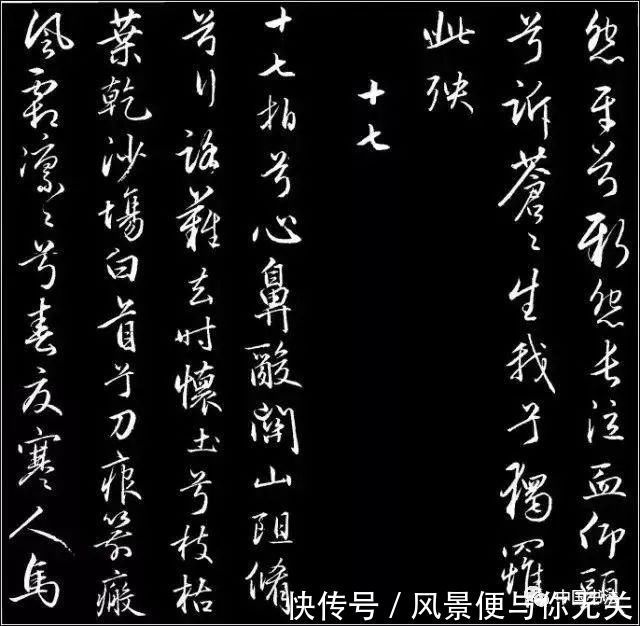 怨平兮新怨長泣血仰頭
兮訴蒼〻生我兮獨罹
此殃
十七
十七拍兮心鼻酸關山阻脩
兮行路難去時懷土兮枝枯
葉乾沙塲白首兮刀痕箭瘢
風霜凛〻兮春夏寒人馬
中国书法
快传号 / 风景便与你无关